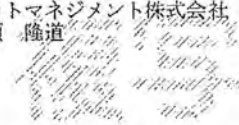 トマネジメント株式会社
隆道
複写